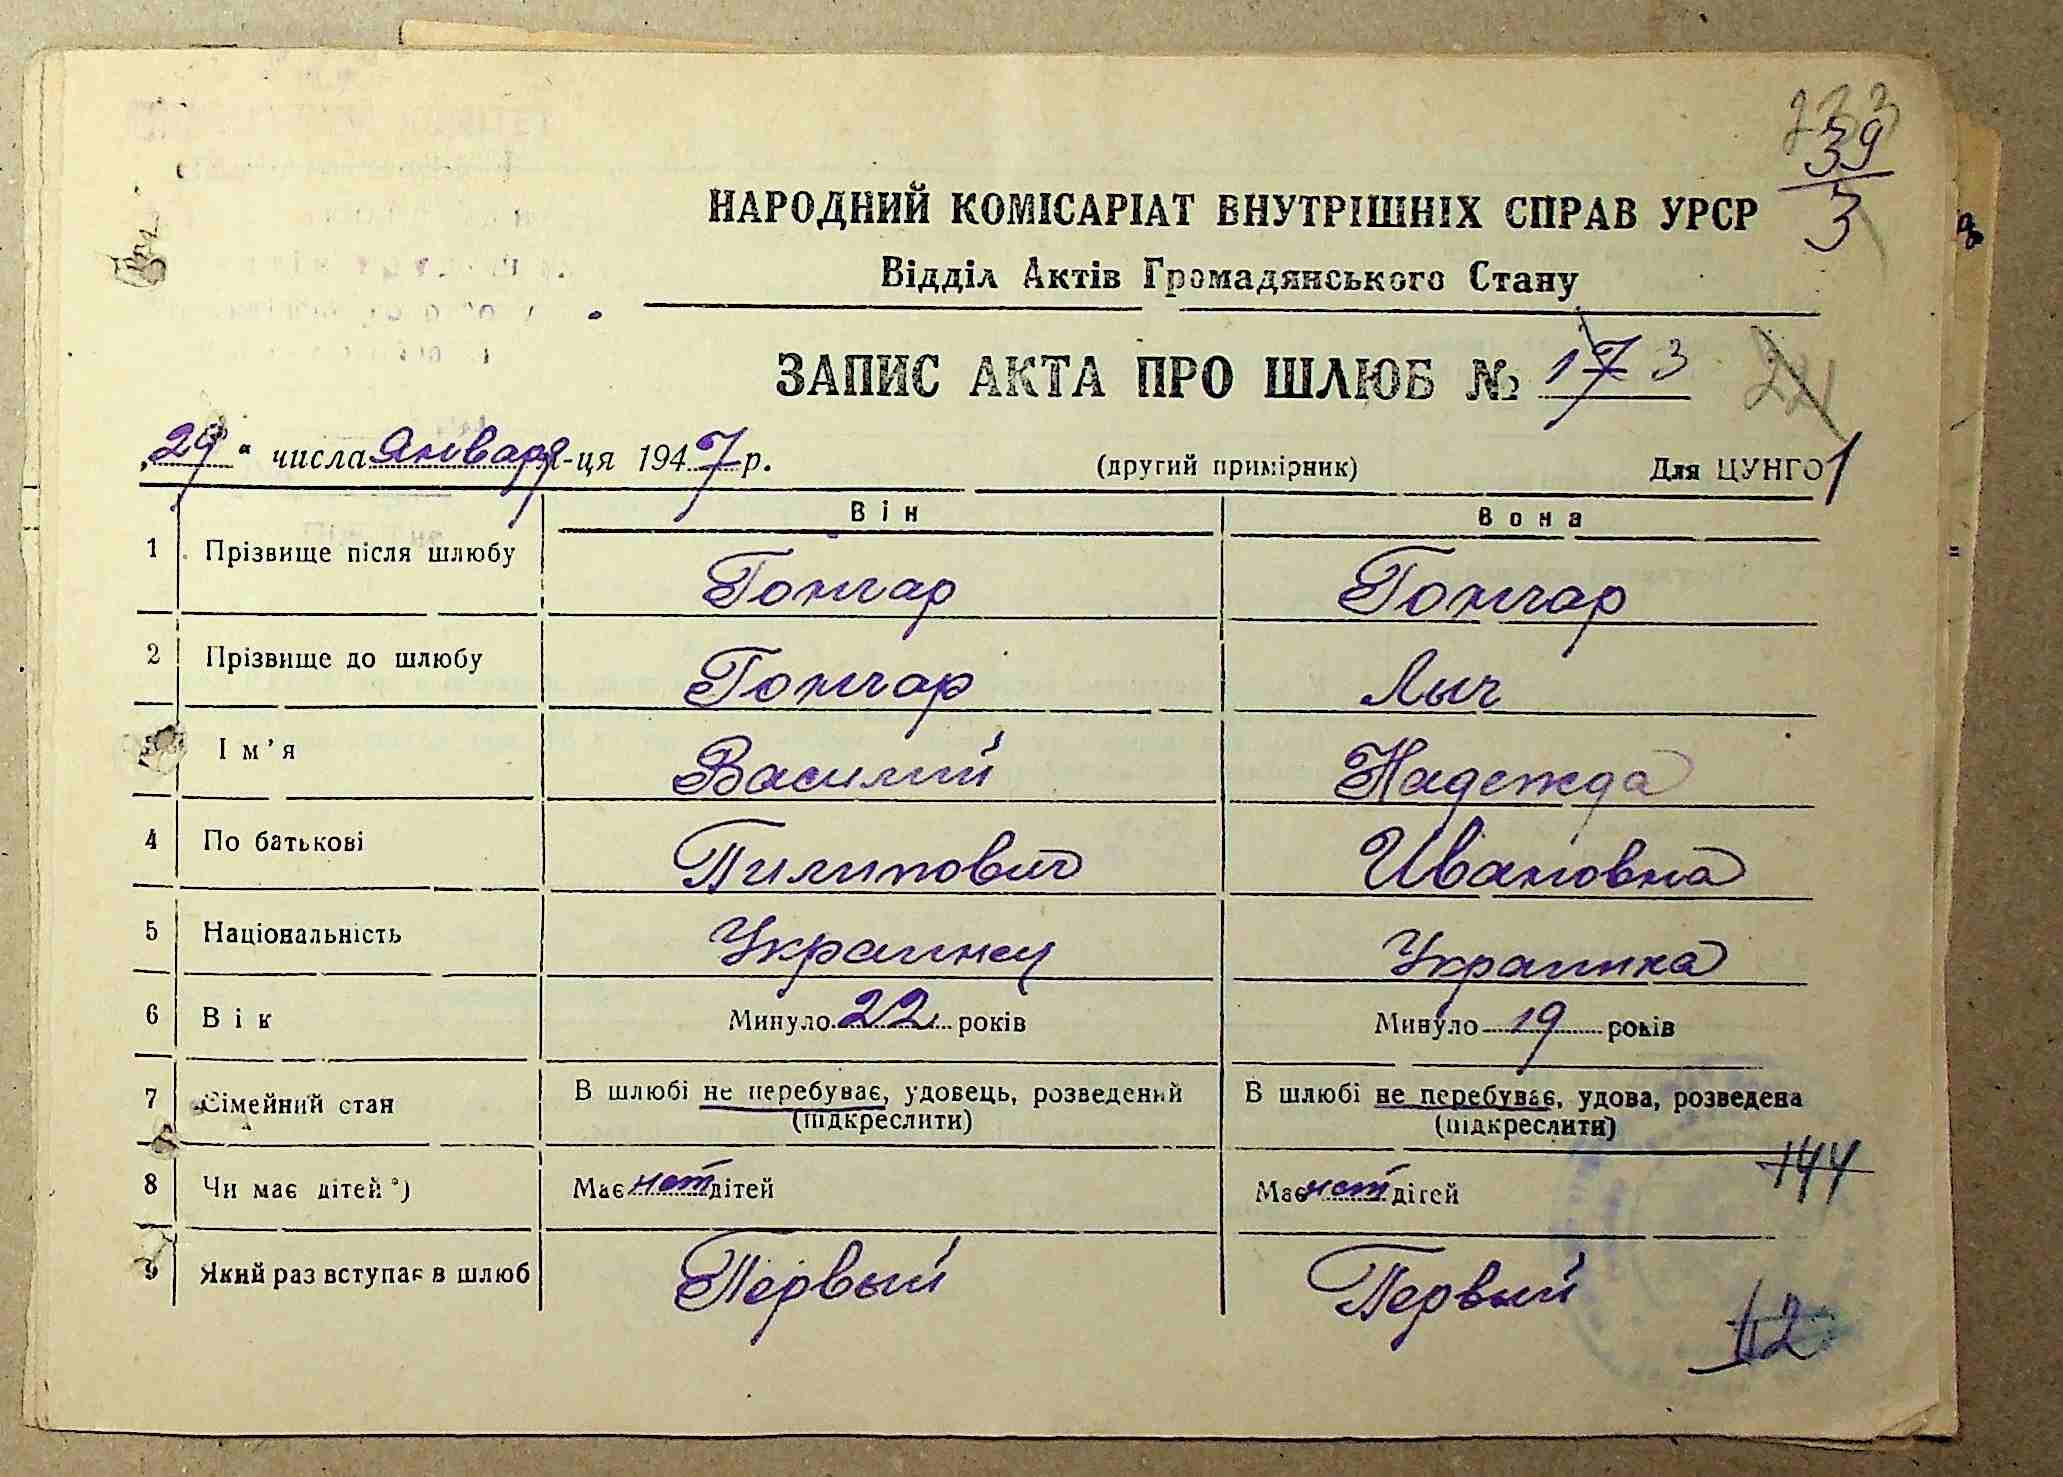 233
39
3
НАРОДНИЙ КОМІСАРІАТ ВНУТРІШНІХ СПРАВ УРСР
Відділ Актів Громадянського Стану
ЗАПИС АКТА ПРО ШЛЮБ № 173
„29“ числа января м-ця 1947 р. (другий примірник) Для ЦУНГО 1
Він Вона
1 Прізвище після шлюбу Гончар Гончар
2 Прізвище до шлюбу Гончар Лыч
3 Ім’я Василий Надежда
4 По батькові Пилипович Ивановна
5 Національність Украинец Украинка
6 Вік Минуло 22 років Минуло 19 років
7 Сімейний стан В шлюбі не перебуває, удовець, розведений В шлюбі не перебуває, удова, розведена
(підкреслити) (підкреслити)
144
8 Чи має дітей *) Має нет дітей Має нет дітей
9 Який раз вступає в шлюб Первый Первый